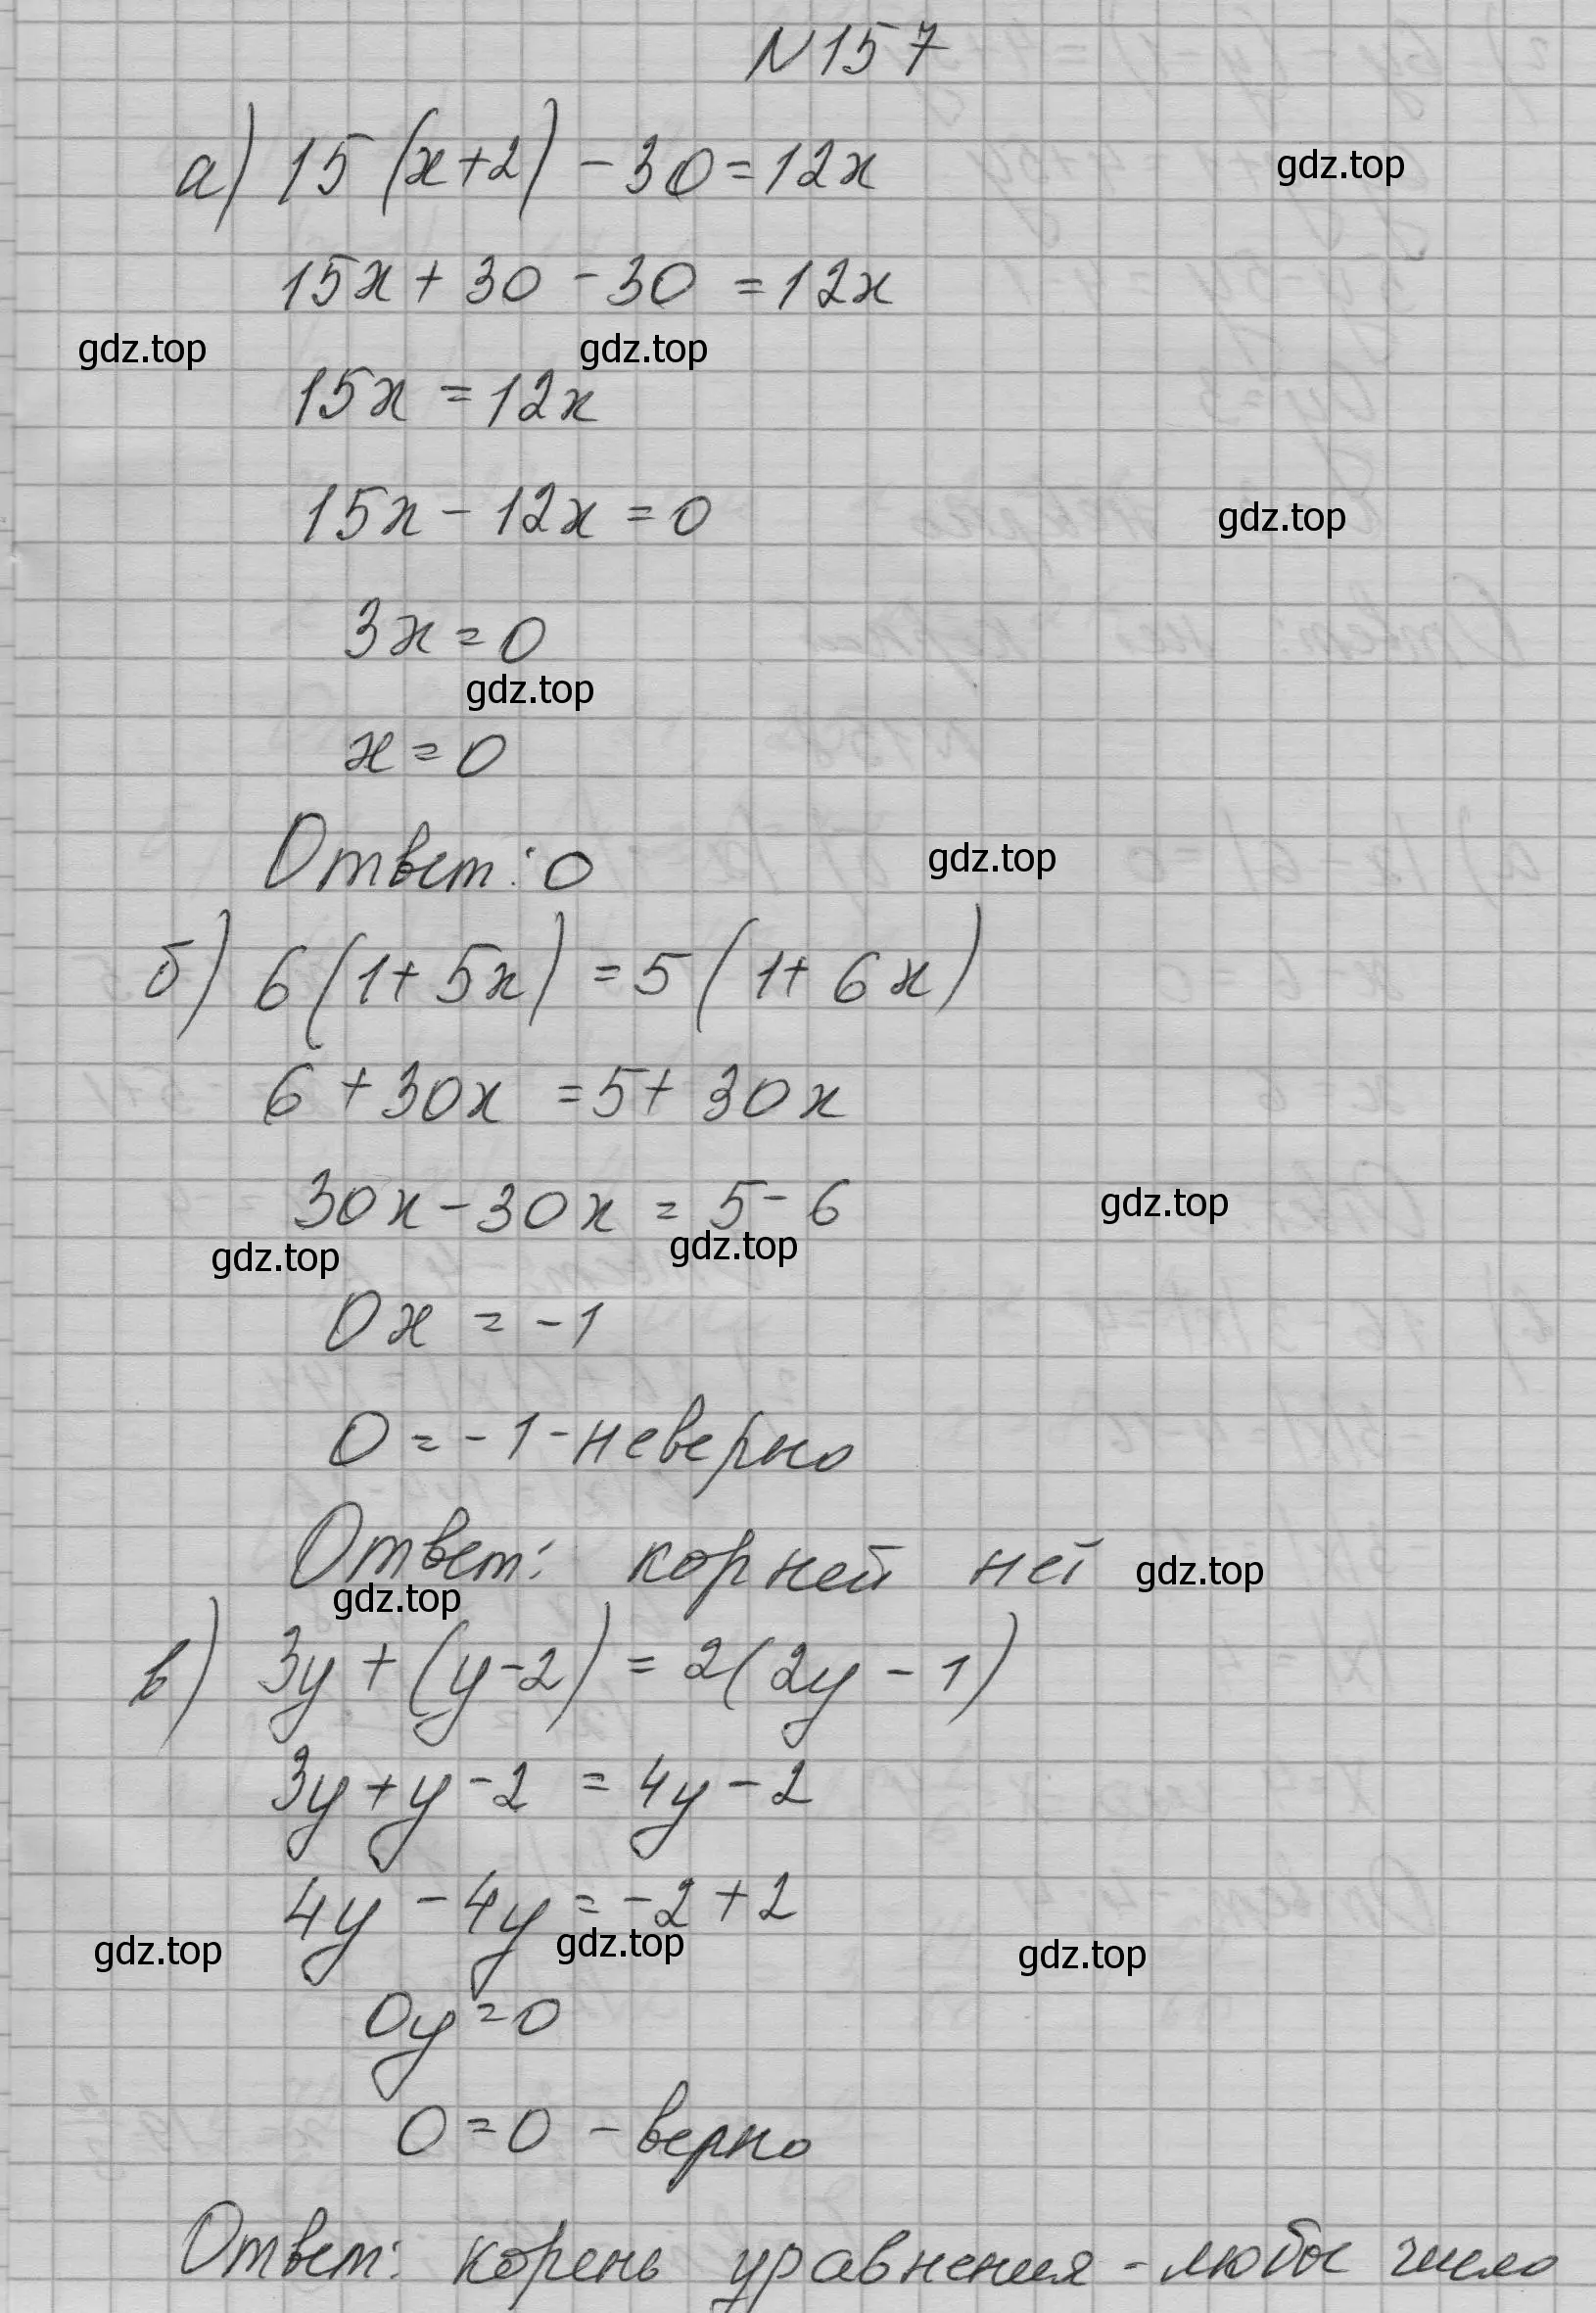 N157
а) 15 (x+2) - 30 = 12x
gdz.top
15x + 30 - 30 = 12x
gdz.top gdz.top
15x = 12x
15x - 12x = 0
gdz.top
3x = 0
gdz.top
x = 0
Ответ: 0
gdz.top
б) 6(1+5x) = 5(1+6x)
6 + 30x = 5 + 30x
30x - 30x = 5 - 6
gdz.top
gdz.top gdz.top
0x = -1
0 = -1 - неверно
Ответ: корней нет
gdz.top
gdz.top
в) 3y + (y-2) = 2(2y - 1)
3y + y - 2 = 4y - 2
4y - 4y = -2 + 2
gdz.top gdz.top gdz.top
0y = 0
0 = 0 - верно
Ответ: корень уравнения - любое число